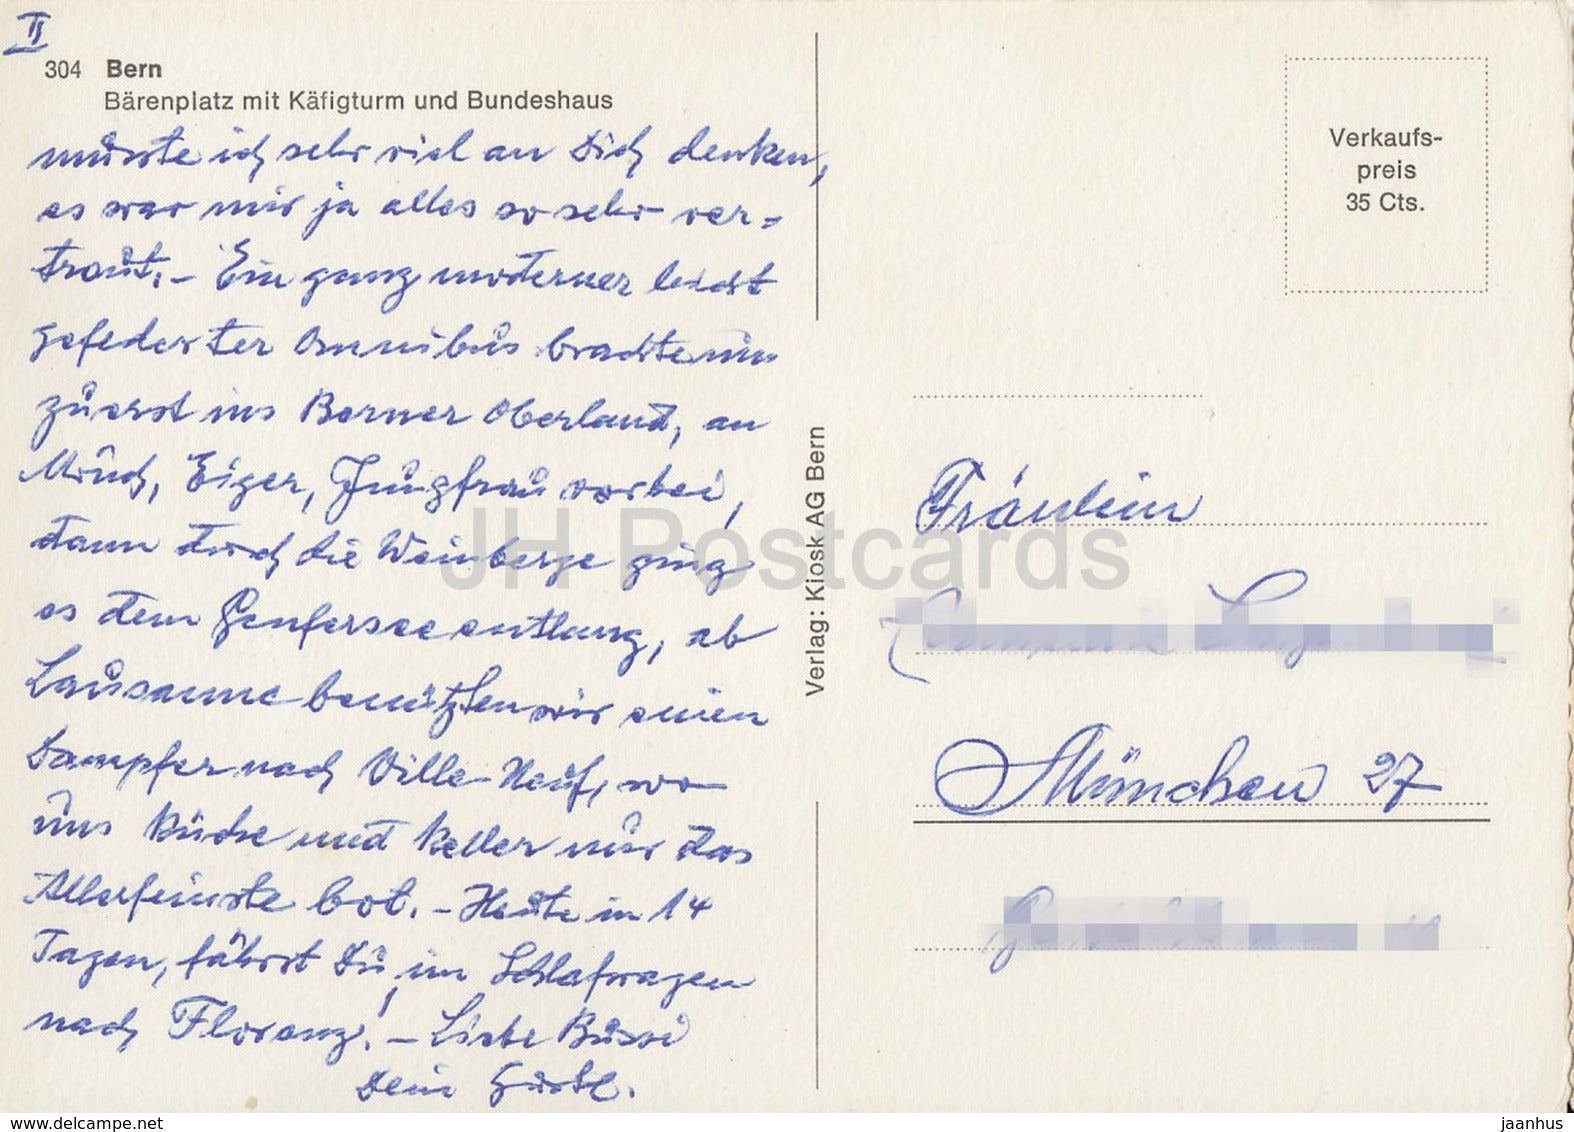 II
304 Bern
Bärenplatz mit Käfigturm und Bundeshaus
musste ich sehr viel an Dich denken,
es war mir ja alles so sehr ver-
traut. – Ein ganz moderner leicht
gefederter Omnibus brachte uns
zuerst ins Berner Oberland, an
Mönch, Eiger, Jungfrau vorbei,
dann durch die Weinberge ging
es dem Genfersee entlang, ab
Lausanne benützten wir einen
Dampfer nach Ville-Neuf, wo
uns Küche und Keller nur das
Allerfeinste bot. – Heute in 14
Tagen, fährst Du, im Schlafwagen
nach Florenz! – Liebe Bussi
Dein Gustl.
Verlag: Kiosk AG Bern
Verkaufs-
preis
35 Cts.
Fräulein
München 27
JH Postcards
www.delcampe.net
jaanhus